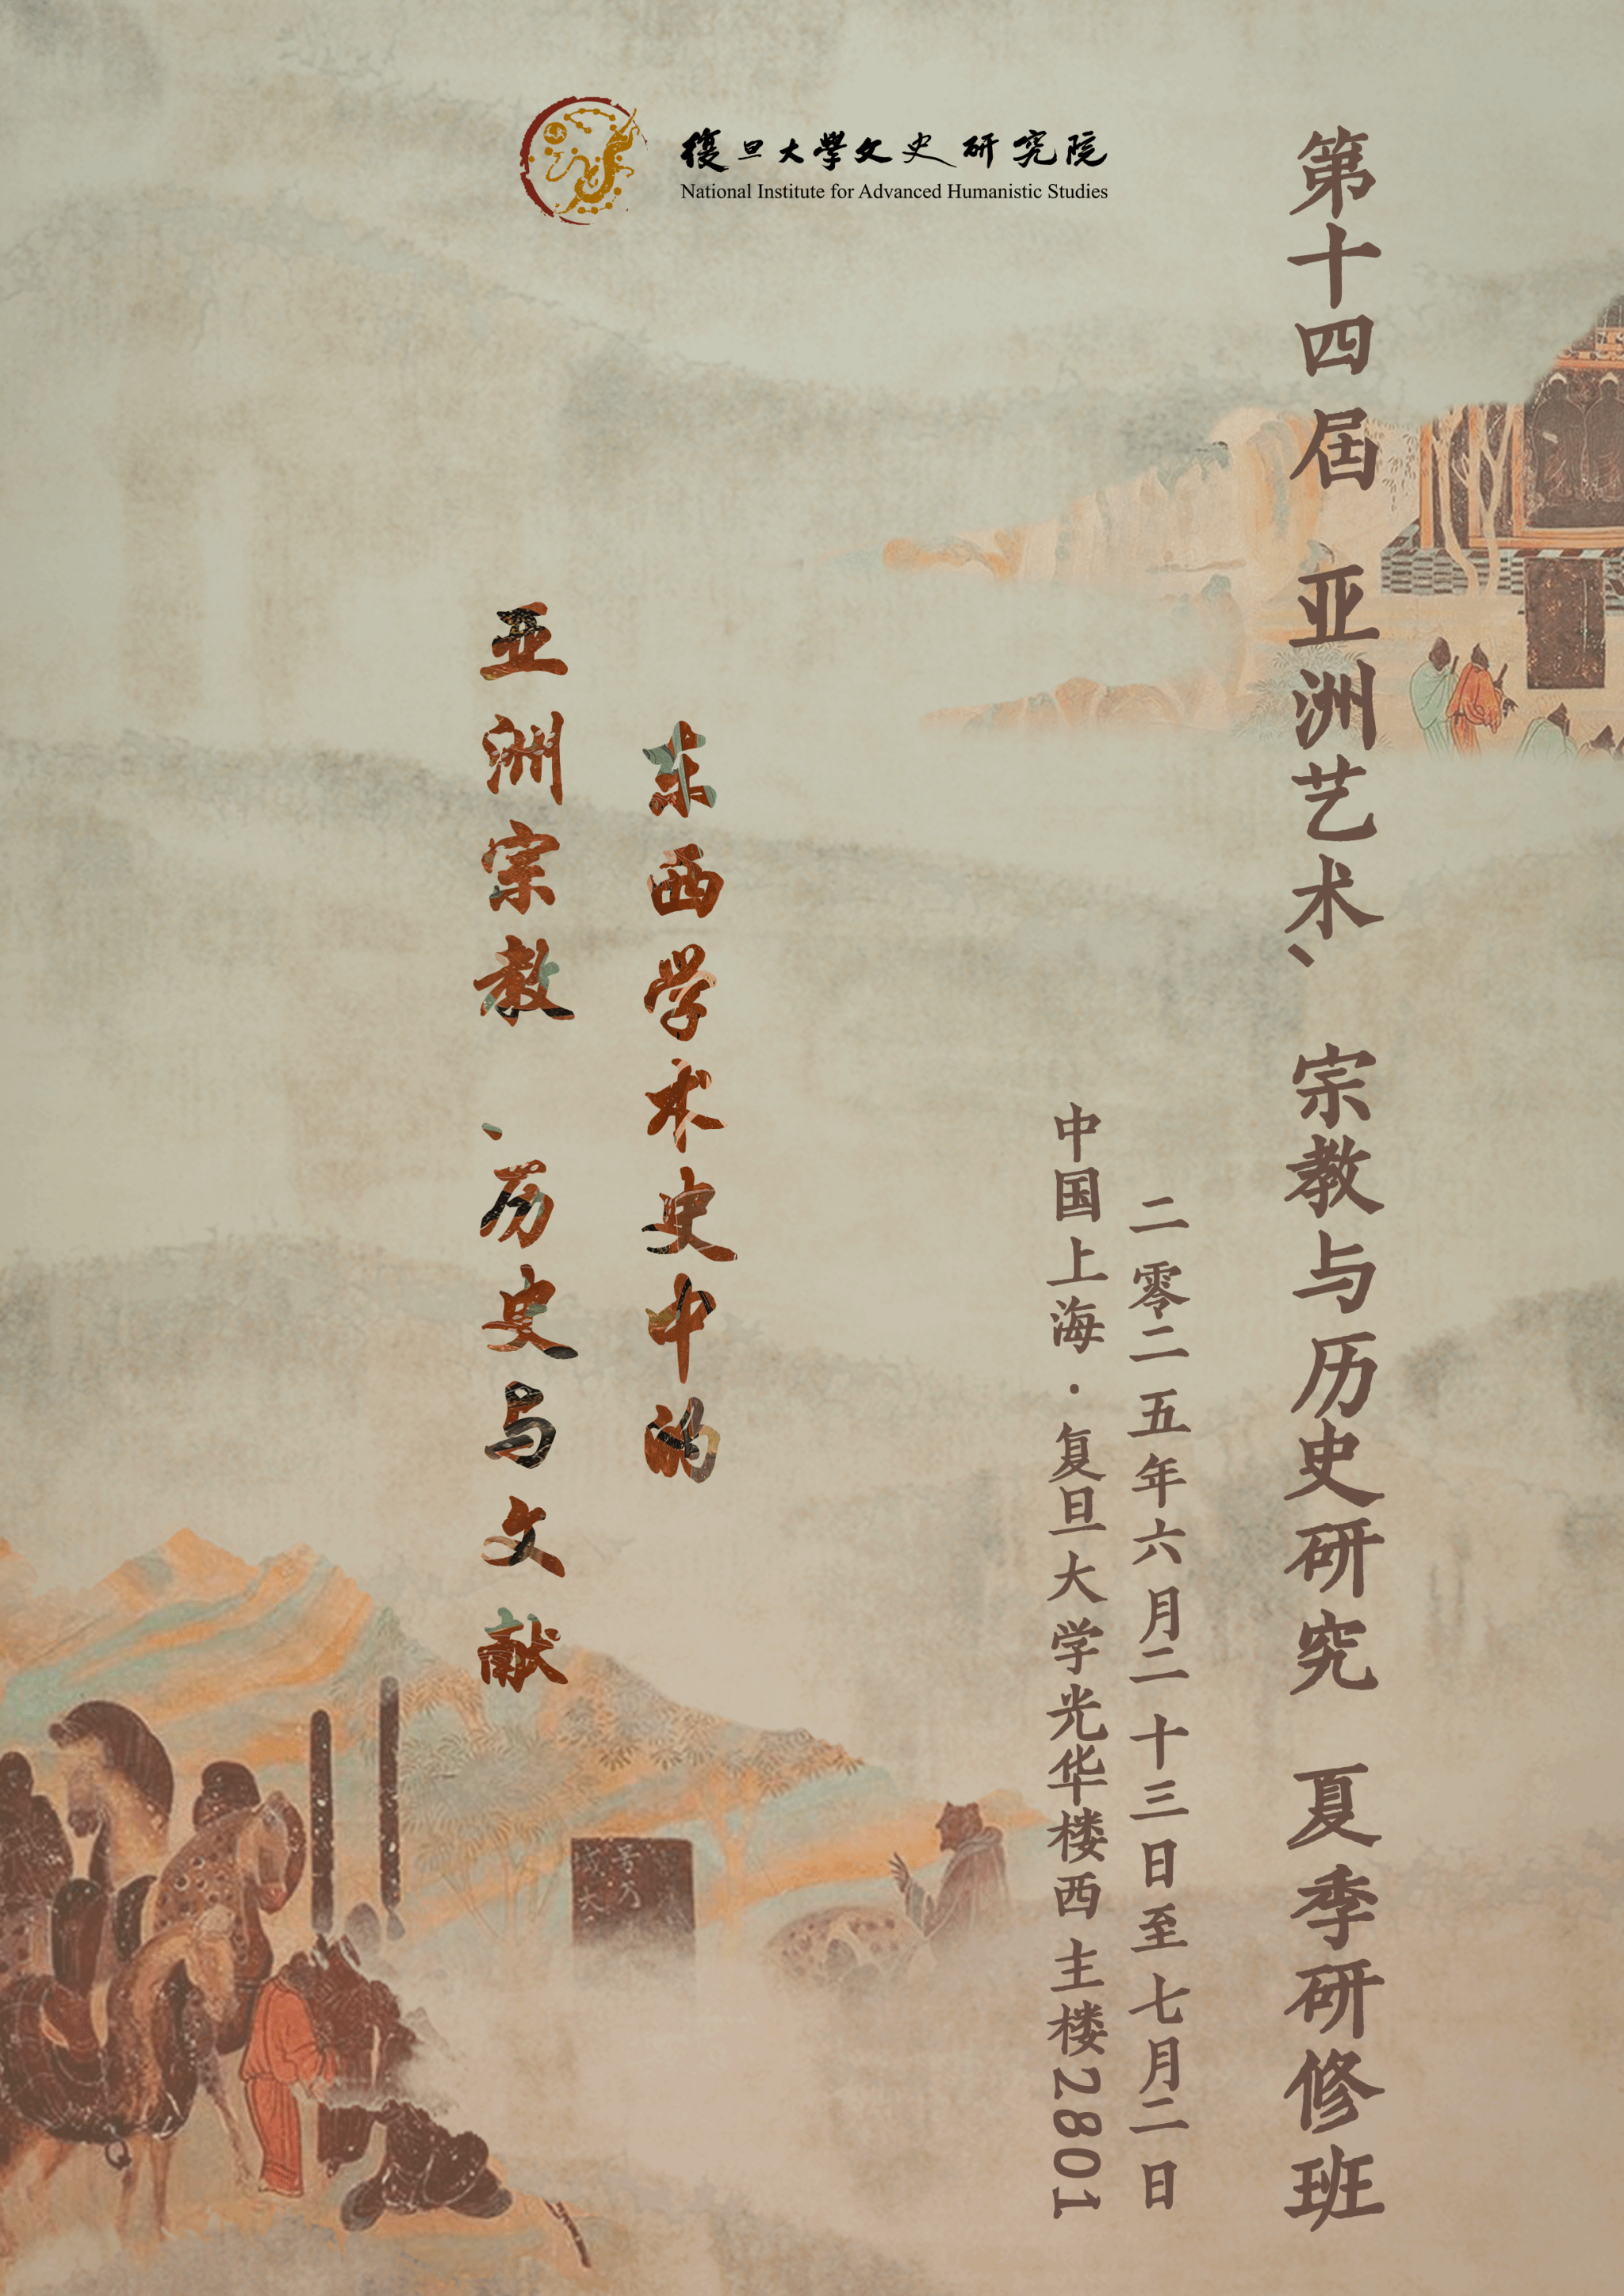 復旦大學文史研究院
National Institute for Advanced Humanistic Studies
第十四届 亚洲艺术、宗教与历史研究 夏季研修班
二零二五年六月二十三日至七月二日
中国上海·复旦大学光华楼西主楼2801
东西学术史中的
亚洲宗教、历史与文献